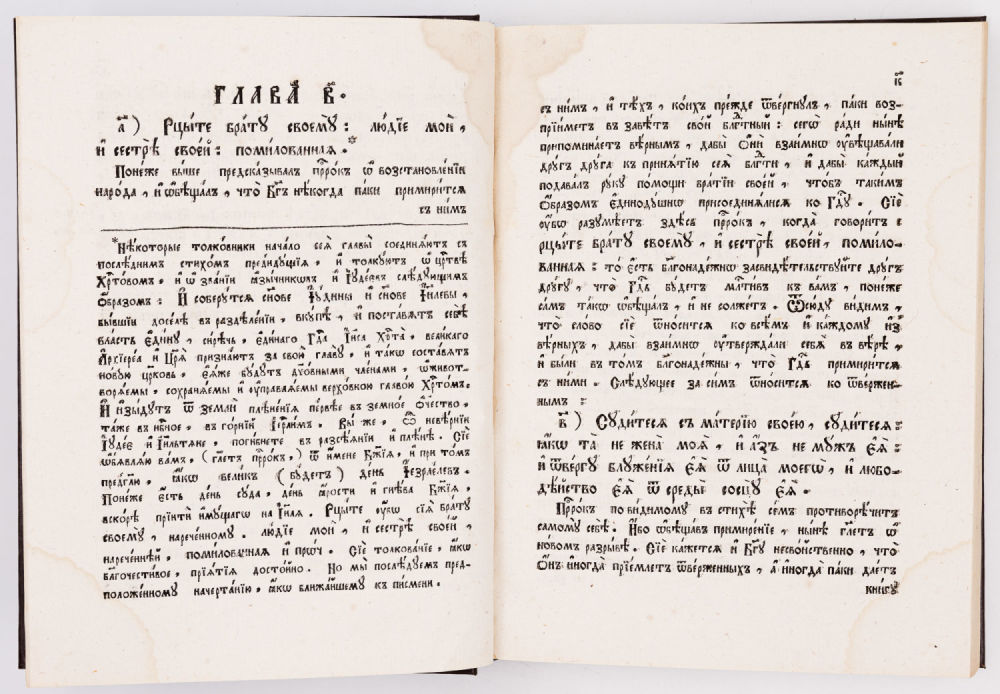 ГЛАВА̀ В҃.
а҃) Рцы́те бра́ту своемꙋ̀: лю́дїе моѝ,
и҆ сестрѣ̀ свое́й: поми́лованная.*
Поне́же вы́ше предсказывалъ прⷪ҇ро́къ ѡ҆ возстановле́нїи
наро́да, и҆ ѡ҆бѣща́лъ, что̀ Бг҃ъ нѣ́когда па́ки примири́тсѧ
съ ни́мъ
*Нѣ́которые толко́вники нача́ло сеѧ̀ главы̀ соединѧ́ютъ съ
послѣ́днимъ стихо́мъ предидꙋ́щїѧ, и҆ толкꙋ́ютъ ѡ҆ црⷭ҇твѣ
Хрⷭ҇то́вомъ, и҆ ѡ҆ зва́нїи ꙗ҆зы́чникѡвъ, и҆ І҆ꙋде́євъ слѣ́дꙋющимъ
ѻ҆́бразомъ: И҆ соберꙋ́тсѧ сн҃ове І҆ꙋ́дины и҆ сн҃ове І҆и҃левы,
бы́вшїи досе́лѣ въ раздѣле́нїи, вкꙋ́пѣ, и҆ поста́вѧтъ себѣ̀
вла́сть є҆ди́нꙋ, си́рѣчь, є҆ди́наго Гдⷭ҇а І҆и҃са Хрⷭ҇та̀, вели́каго
А҆рхїере́а и҆ Цр҃ѧ̀ призна́ютъ за свою̀ главꙋ̀, и҆ та́кѡ соста́вѧтъ
но́вꙋю цр҃ковь, є҆ѧ́же бꙋ́дꙋтъ дꙋхо́вными чле́нами, ѡ҆живот-
ворѧ́емы, сохранѧ́емы и҆ ᲂу҆правлѧ́емы верхо́вною главо́ю Хрⷭ҇то́мъ.
И҆ и҆зы́дꙋтъ ѿ землѝ плѣне́нїѧ пе́рвѣе въ земно́е ѻ҆те́чество,
та́же въ нбⷭ҇ное, въ го́рнїй І҆ерⷭ҇ли́мъ. Вы́ же, ѽ невѣ́рнїи
І҆ꙋде́є и҆ І҆и҃льтѧне, поги́бнете въ разсѣ́ѧнїи и҆ плѣ́нѣ. Сїѐ
ѡ҆б̾ѧвлѧ́ю ва́мъ, (гл҃етъ прⷪ҇ро́къ,) ѿ и҆́мене Бж҃їѧ, и҆ при то́мъ
предлага́ю, ꙗ҆́кѡ вели́къ (бꙋ́детъ) де́нь І҆езрае́левъ.
Поне́же є҆́сть де́нь сꙋда̀, де́нь ꙗ҆́рости и҆ гнѣ́ва Бж҃їѧ,
вско́рѣ прїитѝ и҆мꙋ́щагѡ на І҆и҃лѧ. Рцы́те ᲂу҆̀бѡ сїѧ̀ бра́тꙋ
своемꙋ̀, нарече́нномꙋ. лю́дїе моѝ, и҆ сестрѣ̀ свое́й,
нарече́ннѣй, поми́лованнаѧ и҆ про́ч. Сїѐ толкова́нїе, ꙗ҆́кѡ
благочести́вое, прїѧ́тїѧ досто́йно. Но мы̀ послѣ́дꙋемъ пред-
положе́нномꙋ начерта́нїю, ꙗ҆́кѡ ближа́йшемꙋ къ пи́смени.
к҃
съ ни́мъ, и҆ тѣ́хъ, ко́ихъ пре́жде ѿве́ргнꙋлъ, па́ки воз-
прїи́метъ въ завѣ́тъ сво́й блгⷣа́тный: сегѡ̀ ра́ди ны́нѣ
припомина́етъ вѣ́рнымъ, дабы̀ ѻ҆нѝ взаи́мнѡ ᲂу҆вѣщава́ли
дрꙋ́гъ дрꙋ́га къ принѧ́тїю сеѧ̀ блгⷣа́ти, и҆ дабы̀ ка́ждый
подава́лъ рꙋ́кꙋ по́мощи бра́тїи свое́й, что́бъ таки́мъ
ѻ҆́бразомъ є҆динодꙋ́шнѡ присоединѧ́лисѧ ко Гдⷭ҇ꙋ. Сїѐ
ᲂу҆́бѡ разꙋмѣ́етъ здѣ́сь прⷪ҇ро́къ, когда̀ говори́тъ:
рцы́те бра́тꙋ своемꙋ̀, и҆ сестрѣ̀ свое́й, поми́ло-
ваннаѧ: то̀ є҆́сть благонаде́жнѡ засвидѣ́тельствꙋйте дрꙋ́гъ
дрꙋ́гꙋ, что̀ Гдⷭ҇ь бꙋ́детъ млⷭ҇тивъ къ ва́мъ, поне́же
са́мъ та́кѡ ѡ҆бѣща́лъ, и҆ не солже́тъ. Ѿсю́дꙋ ви́димъ,
что̀ сло́во сїѐ ѿно́ситсѧ ко всѣ́мъ и҆ ка́ждомꙋ и҆з̾
вѣ́рныхъ, дабы̀ взаи́мнѡ ᲂу҆твержда́ли себѧ̀ въ вѣ́рѣ,
и҆ бы́ли въ то́мъ благонаде́жны, что̀ Гдⷭ҇ь примири́тсѧ
съ ни́ми. Слѣ́дꙋющее за си́мъ ѿно́ситсѧ ко ѿве́ржен-
нымъ:
в҃) Сꙋди́тесѧ съ ма́терїю свое́ю, сꙋди́тесѧ:
ꙗ҆́кѡ та̀ не жена̀ моѧ̀, и҆ а҆́зъ не мꙋ́жъ є҆ѧ̀:
и҆ ѿве́ргꙋ блꙋже́нїѧ є҆ѧ̀ ѿ лица̀ моегѡ̀, и҆ любо-
дѣ́йство є҆ѧ̀ ѿ среды̀ сосцꙋ̀ є҆ѧ̀.
Прⷪ҇ро́къ по ви́димомꙋ въ стихѣ̀ се́мъ противорѣ́читъ
самомꙋ̀ себѣ̀. И҆́бо ѡ҆бѣща́въ примире́нїе, ны́нѣ гл҃етъ ѡ҆
но́вомъ разры́вѣ. Сїѐ ка́жетсѧ и҆ Бг҃ꙋ несво́йственно, что̀
ѻ҆́нъ и҆ногда̀ прїе́млетъ ѿве́рженныхъ, а҆ и҆ногда̀ па́ки дае́тъ
кни́гꙋ